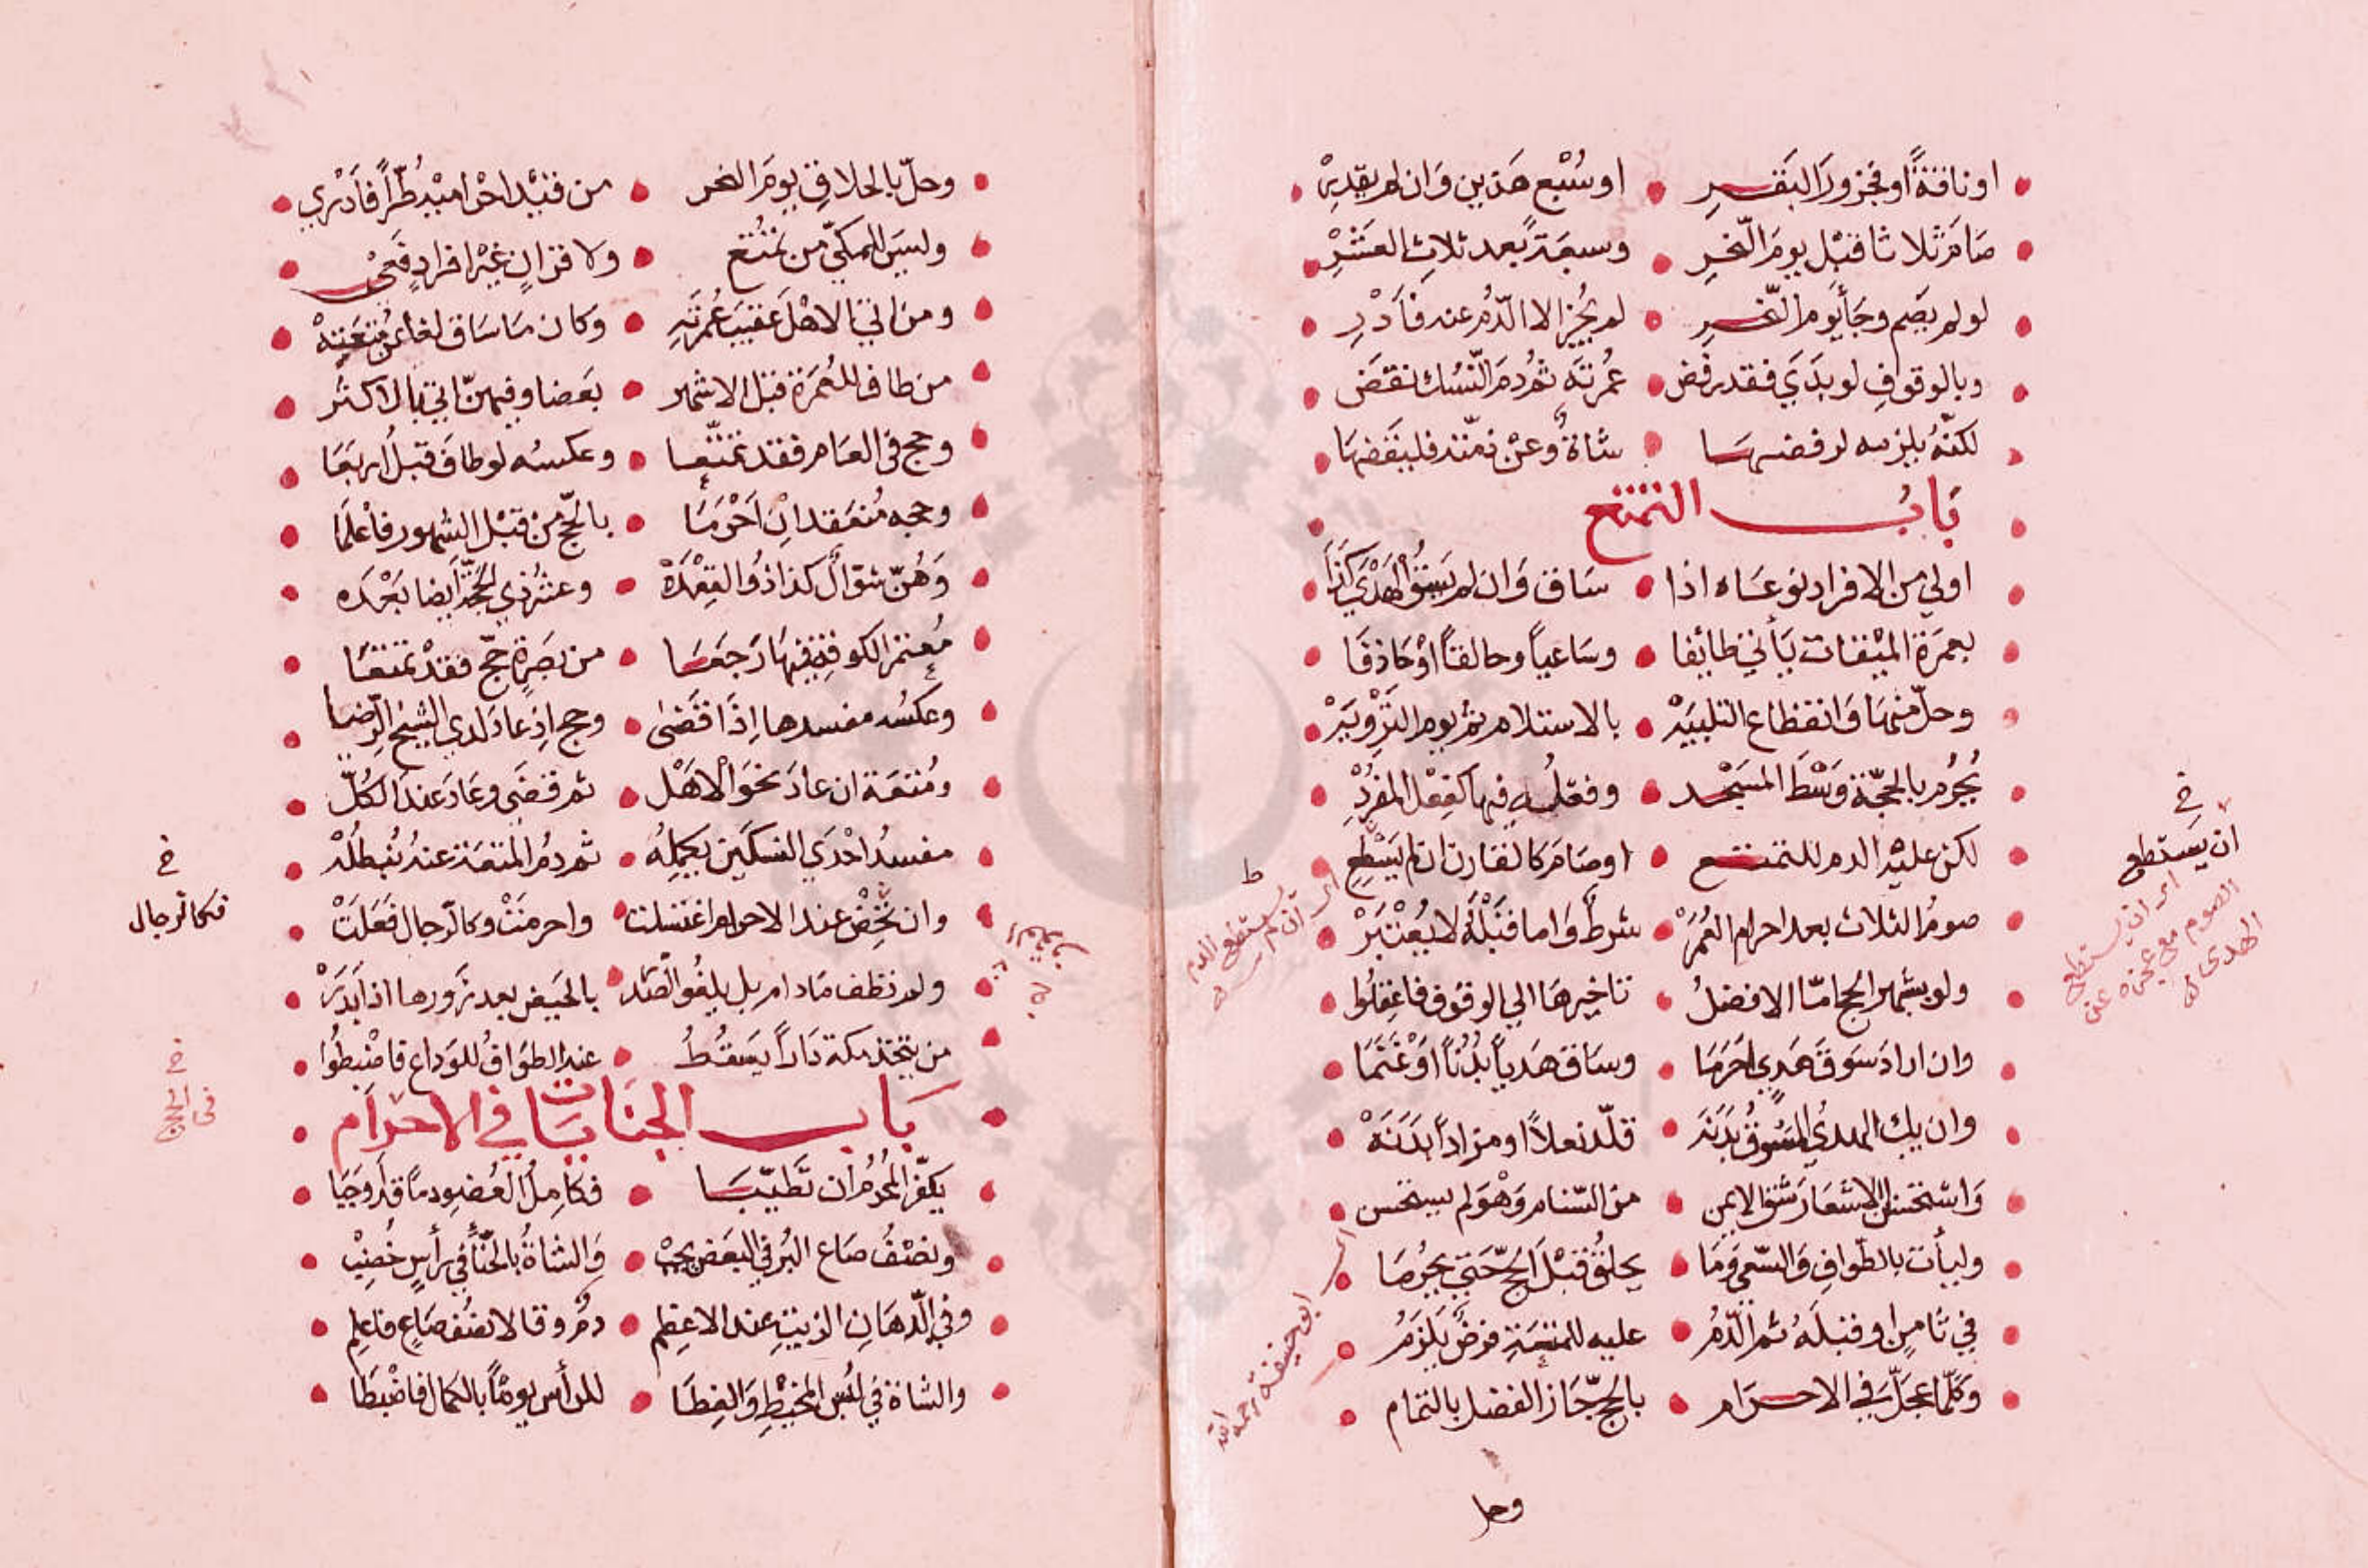 او ناقةً او فجزور البقر او سُبْع هذين وان لم يقدر
صام ثلاثا قبل يوم النحر وسبعة بعد ثلاث العشر
لو لم يصم وجا يوم النحر لم يجز الا الدم عنه فأدر
وبالوقوف لو بدي فقد رفض عمرته ثم دم النسك نقض
لكنه يلزمه لرفضها شاة وعن فليقضها
باب التمتع
اولي من الافراد نوعاه اذا ساق وان لم يسق الهدي كذا
بعمرة الميقات يأتي طائفا وساعياً وحالقاً او حاذفا
وحل منها وانقطاع التلبية بالاستلام ثم يوم التروية
يُحرم بالحجة وسط المسجد وفعله فيها كفعل المفرد
لكن عليه الدم للتمتع او صام كالقارن ان لم يسطع
صوم الثلاث بعد احرام العُمَرْ شرط واما قبله لا يُعتبر
ولو بشهر الحج اما الافضل تاخيرها الي الوقوف فاعقلوا
وان اراد سوق هدي احرما وساق هدياً بُدُناً او غنما
وان يك الهدي المسوق بدنه قلّد نعلاً او مزاداً بدنه
واستحسن الاشعار شق الايمن من السنام وهو لم يستحسن
وليأت بالطواف والسعي وما يحلق قبل الحج حتي يحرما
في ثامن او قبله ثم الدم عليه للمتعة فرض يلزم
وكلما عجل في الاحرام بالحج جاز الفضل بالتمام
وحل
خ
ان يستطع
اي ان يستطع
الصوم مع عجزه عن
الهدي
ط
اي ان لم يستطع الدم
اي
ابو حنيفة رحمه الله
وحلّ بالحلاق يوم النحر من قيد احراميه طُرّاً فأدري
وليس للمكي من تمتع ولا قران غير افراد فعي
ومن اتي الاهل عقيب عمرته وكان ما ساق لغا عن متعته
من طاف للعمرة قبل الاشهر بعضا وفيهن اتي بالاكثر
وحج في العام فقد تمتعا وعكسه لو طاف قبل اربعا
وحجه منعقد ان احرما بالحج من قبل الشهور فاعلما
وهن شوال كذا ذو القعدة وعشر ذي الحجة ايضا بعده
معتمر الكوفة فيها رجعا من بصرة حج فقد تمتعا
وعكسه مفسدها اذا قضى وحج اذ عاد لدي الشيخ الرضا
ومتعة ان عاد نحو الاهل ثم قضي وعاد عند الكل
مفسد احدي النسكين يكمله ثم دم المتعة عنه نبطله
وان تحض عند الاحرام اغتسلت واحرمت وكالرجال فعلت
ولم تطف مادام بل يلغو الصدر بالحيض بعد زورها اذا بدر
من يتخذ مكة داراً يسقط عنه الطواف للوداع فاضبطوا
باب الجنايات في الاحرام
يكفّر المحرم ان تطيبا فكامل العضو دما قد اوجبا
ونصف صاع البُر في البعض يجب والشاة بالحنّا في رأس خُضِب
وفي الدهان الزيت عند الاعظم دم وقالا نصف صاع فاعلم
والشاة في لبس المخيط والغطا للرأس يوماً بالكمال فاضبطا
خ
فكالرجال
خ
في الحج